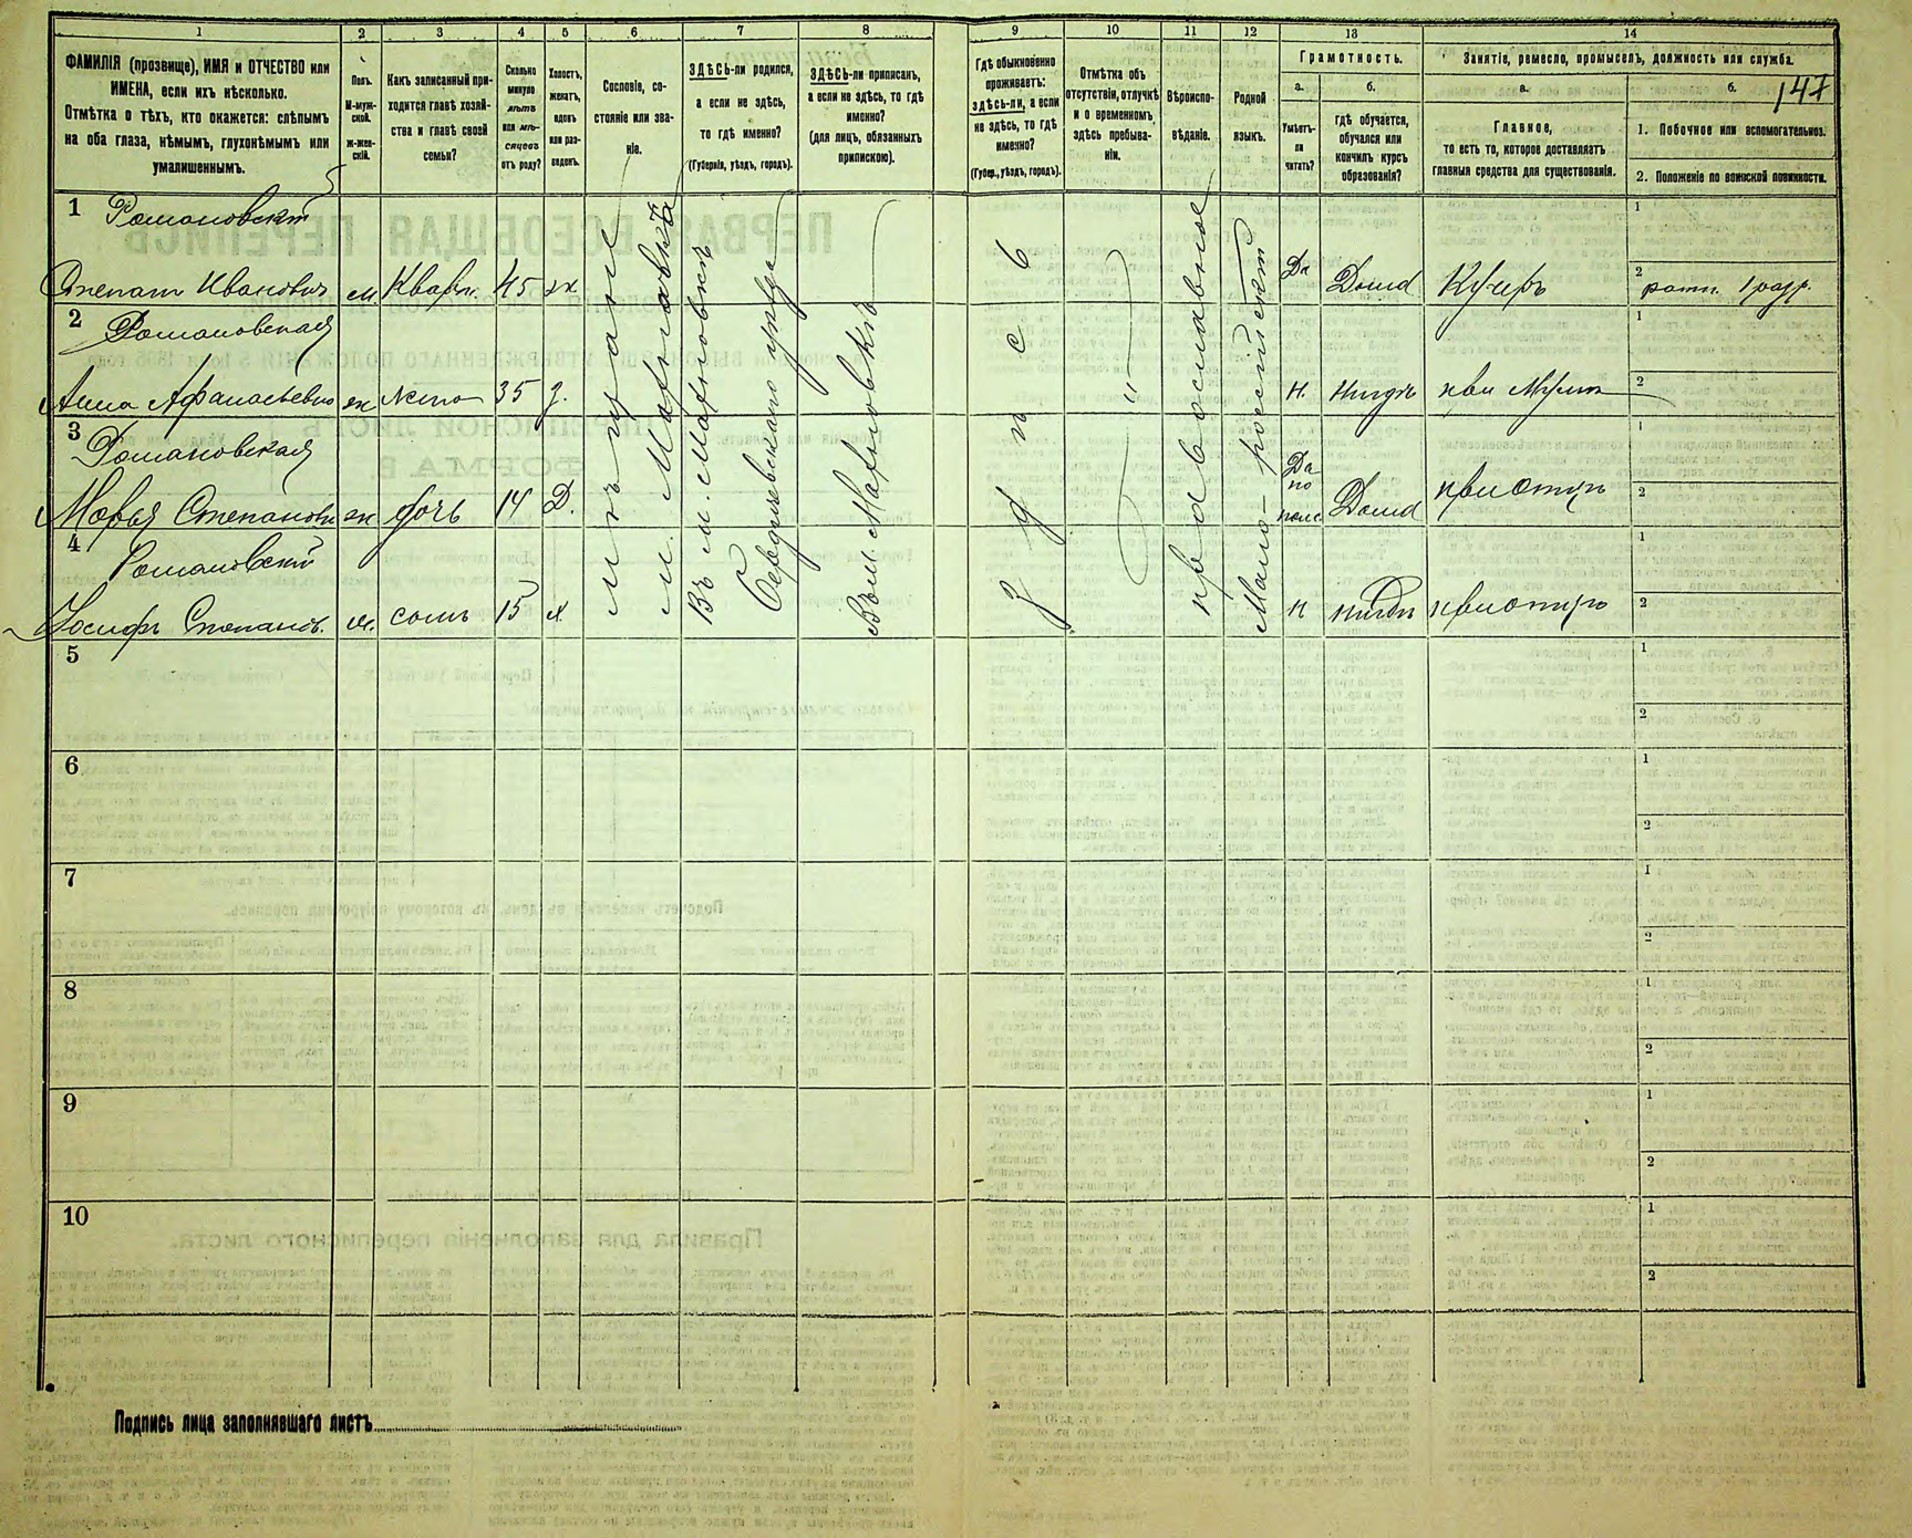 1 2 3 4 5 6 7 8 9 10 11 12 13 14
147
ФАМИЛІЯ (прозвище), ИМЯ и ОТЧЕСТВО или
ИМЕНА, если ихъ нѣсколько.
Отмѣтка о тѣхъ, кто окажется: слѣпымъ
на оба глаза, нѣмымъ, глухонѣмымъ или
умалишеннымъ.
Полъ.
М-муж-
ской.
Ж-жен-
скій.
Какъ записанный при-
ходится главѣ хозяй-
ства и главѣ своей
семьи?
Сколько
минуло
лѣтъ
или мѣ-
сяцевъ
отъ роду?
Холостъ,
женатъ,
вдовъ
или раз-
веденъ.
Сословіе, со-
стояніе или зва-
ніе.
ЗДѢСЬ-ли родился,
а если не здѣсь,
то гдѣ именно?
(Губернія, уѣздъ, городъ).
ЗДѢСЬ-ли приписанъ,
а если не здѣсь, то гдѣ
именно?
(для лицъ, обязанныхъ
припискою).
Гдѣ обыкновенно
проживаетъ:
здѣсь-ли, а если
не здѣсь, то гдѣ
именно?
(Губер., уѣздъ, городъ).
Отмѣтка объ
отсутствіи, отлучкѣ
и о временномъ
здѣсь пребыва-
ніи.
Вѣроиспо-
вѣданіе.
Родной
языкъ.
Грамотность.
а.
Умѣетъ-
ли
читать?
б.
Гдѣ обучается,
обучался или
кончилъ курсъ
образованія?
Занятіе, ремесло, промыселъ, должность или служба.
а.
Главное,
то есть то, которое доставляетъ
главныя средства для существованія.
б.
1. Побочное или вспомогательное.
2. Положеніе по воинской повинности.
1 Романовскій
Степанъ Ивановичъ м. Кварт. 45 ж Да Дома Кучеръ
1
2 ратн. 1 разр.
2 Романовская
Анна Афанасьевна ж 35 З. н. нигдѣ при мужѣ
1
2
3 Романовская
Марья Степанов ж дочь 14 Д. Да по поль Дома при отцѣ
1
2
4 Романовскій
Іосифъ Степанов. м. сынъ 15 х н нигдѣ при отцѣ
1
2
мѣщане
м. Махновка
Въ м. Махновкѣ
Бердичевскаго уѣзда
Въ м. Махновкѣ
здѣсь
православное
Мало-россійскій
5 1
2
6 1
2
7 1
2
8 1
2
9 1
2
10 1
2
Подпись лица заполнявшаго листъ